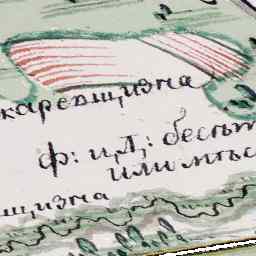 каревщизна
ф: и,д,: бесѣт
или мѣс
щизна